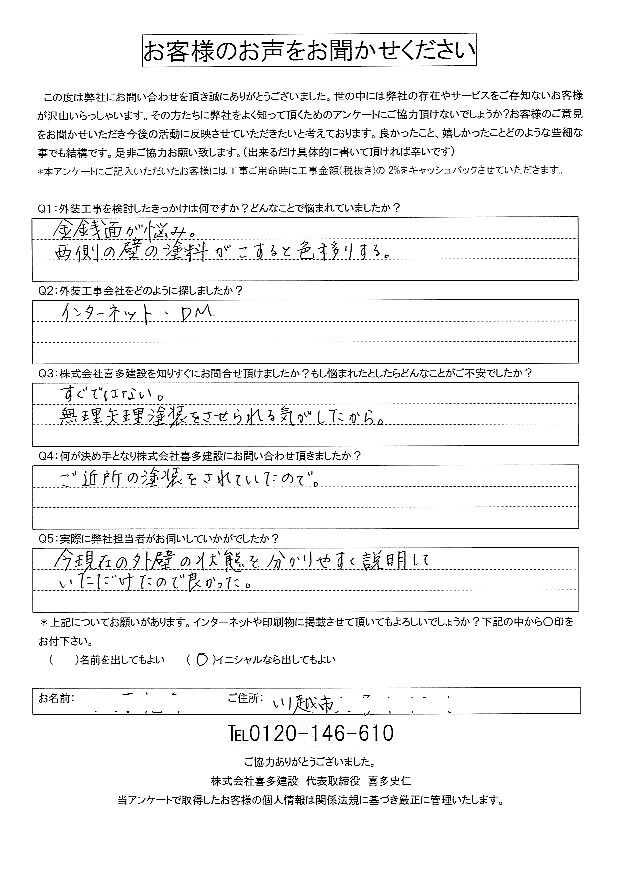 お客様のお声をお聞かせください
この度は弊社にお問い合わせを頂き誠にありがとうございました。世の中には弊社の存在やサービスをご存知ないお客様
が沢山いらっしゃいます。その方たちに弊社をよく知って頂くためのアンケートにご協力頂けないでしょうか?お客様のご意見
をお聞かせいただき今後の活動に反映させていただきたいと考えております。良かったこと、嬉しかったことどのような些細な
事でも結構です。是非ご協力お願い致します。(出来るだけ具体的に書いて頂ければ幸いです)
*本アンケートにご記入いただいたお客様には工事ご用命時に工事金額(税抜き)の 2%をキャッシュバックさせていただきます。
Q1:外装工事を検討したきっかけは何ですか?どんなことで悩まれていましたか?
金銭面が悩み。
西側の壁の塗料がこすると色移りする。
Q2:外装工事会社をどのように探しましたか?
インターネット・DM
Q3:株式会社喜多建設を知りすぐにお問合せ頂けましたか?もし悩まれたとしたらどんなことがご不安でしたか?
すぐではない。
無理矢理塗装をさせられる気がしたから。
Q4:何が決め手となり株式会社喜多建設にお問い合わせ頂きましたか?
ご近所の塗装をされていたので。
Q5:実際に弊社担当者がお伺いしていかがでしたか?
今現在の外壁の状態を分かりやすく説明して
いただけたので良かった。
*上記についてお願いがあります。インターネットや印刷物に掲載させて頂いてもよろしいでしょうか?下記の中から〇印を
お付下さい。
( )名前を出してもよい (〇)イニシャルなら出してもよい
お名前: ご住所: 川越市
TEL0120-146-610
ご協力ありがとうございました。
株式会社喜多建設 代表取締役 喜多史仁
当アンケートで取得したお客様の個人情報は関係法規に基づき厳正に管理いたします。